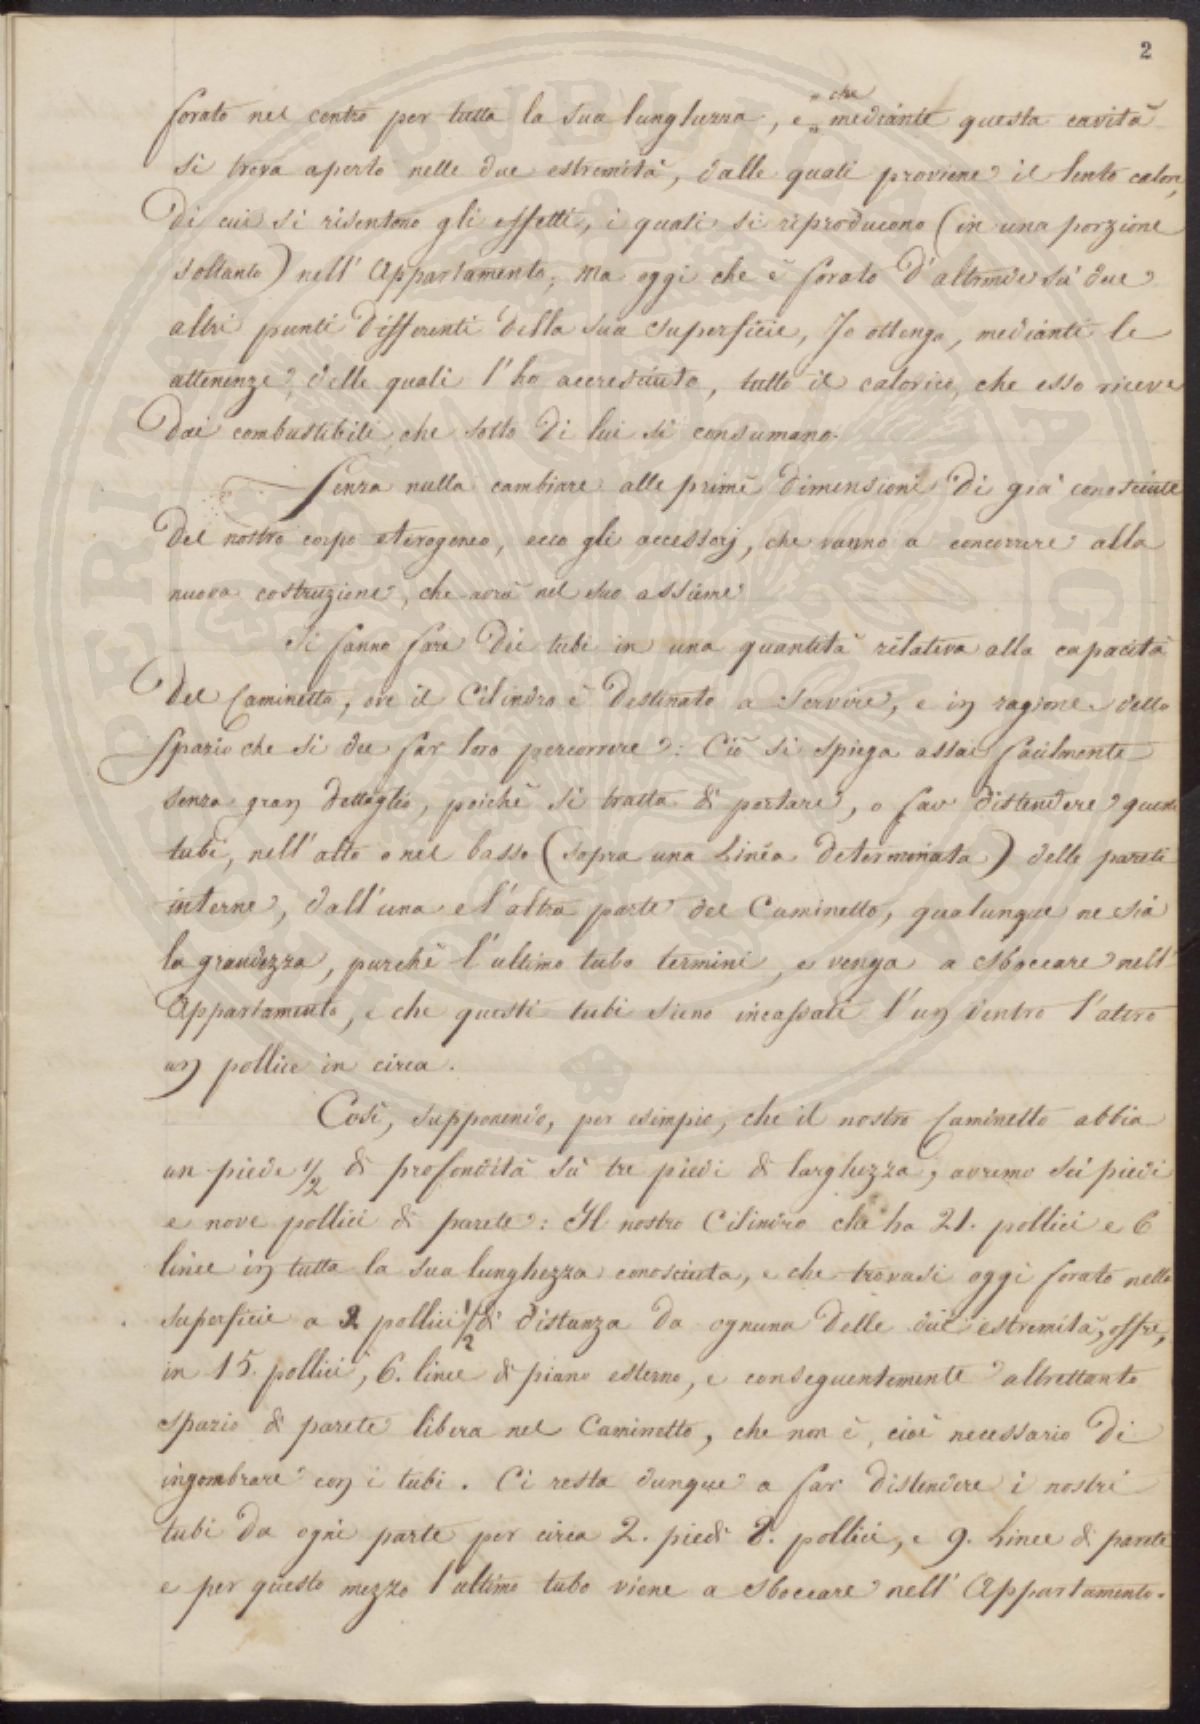 2
forato nel centro per tutta la sua lunghezza, e che mediante questa cavità
si trova aperto nelle due estremità, dalle quali proviene il lento calore,
di cui si risentono gli effetti, i quali si riproducono (in una porzione
soltanto) nell' Appartamento; ma oggi che è forato d'altronde sù due
altri punti differenti della sua superficie, Io ottengo, mediante le
attenenze, delle quali l'ho accresciuto, tutto il calorico, che esso riceve
dai combustibili, che sotto di lui si consumano.
Senza nulla cambiare alle prime dimensioni di già conosciute
del nostro corpo eterogeneo, ecco gli accessorj, che vanno a concorrere alla
nuova costruzione, che avrà nel suo assieme
Si fanno fare dei tubi in una quantità relativa alla capacità
del Caminetto, ove il Cilindro è destinato a servire, e in ragione dello
spazio che si dee far loro percorrere: Ciò si spiega assai facilmente
senza gran dettaglio, poichè si tratta di portare, o far distendere questi
tubi, nell'alto o nel basso (sopra una Linea determinata) delle pareti
interne, dall'una e l'altra parte del Caminetto, qualunque ne sia
la grandezza, purchè l'ultimo tubo termini, e venga a sboccare nell'
Appartamento, e che questi tubi sieno incassati l'un dentro l'altro
un pollice in circa.
Così, supponendo, per esempio, che il nostro Caminetto abbia
un piede 1/2 di profondità sù tre piedi di larghezza, avremo sei piedi
e nove pollici di parete: Il nostro Cilindro che ha 21. pollici e 6
linee in tutta la sua lunghezza conosciuta, e che trovasi oggi forato nella
superficie a 2 pollici 1/2 di distanza da ognuna delle due estremità, offre,
in 15. pollici, 6. linee di piano esterno, e conseguentemente altrettanto
spazio di parete libera nel Caminetto, che non è, cioè necessario di
ingombrare con i tubi. Ci resta dunque a far distendere i nostri
tubi da ogni parte per circa 2. piedi 8. pollici, e 9. Linee di parete
e per questo mezzo l'ultimo tubo viene a sboccare nell' Appartamento.